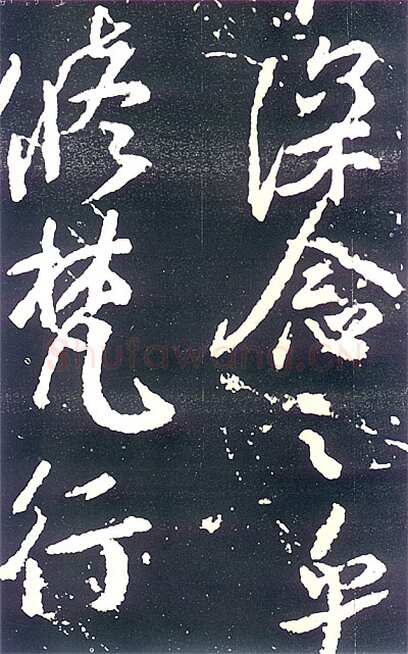 深念之
修梵行
Shufawang.CN